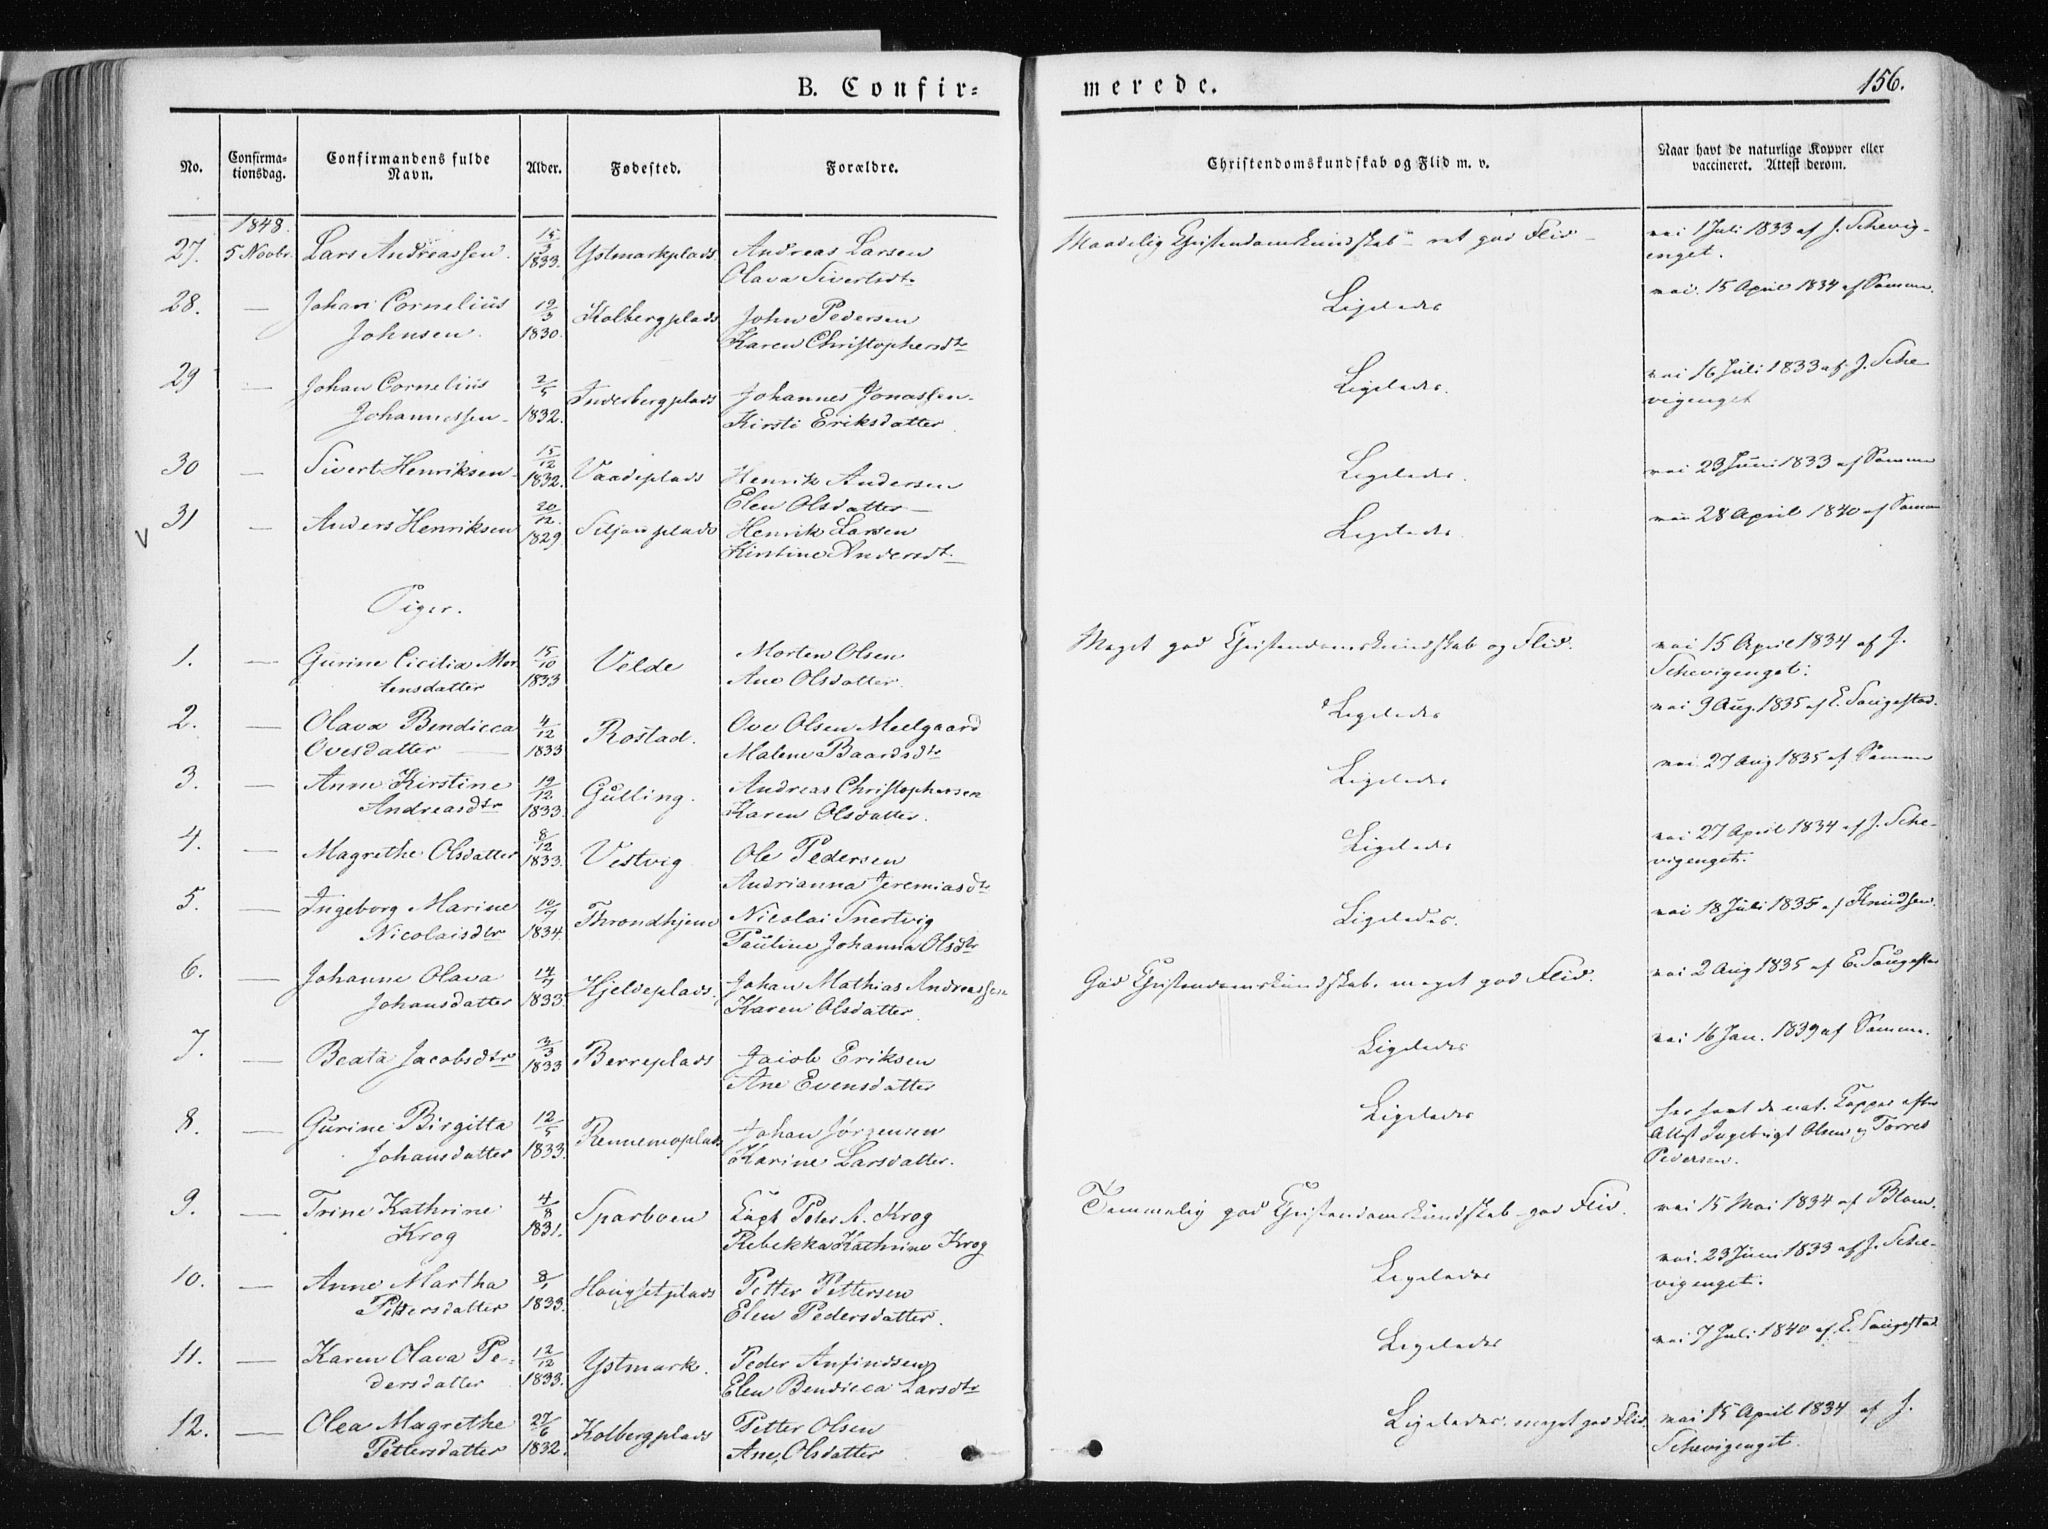 B. Confir=
merede.
156.
No.
Confirma-
tionsdag.
Confirmandens fulde
Navn.
Alder.
Fødested.
Forældre.
Christendomskundskab og Flid m. v.
Naar havt de naturlige Kopper eller
vaccineret. Attest derom.
1848.
27. 5 Novbr. Lars Andreassen. 15/3 1833. Ystmarkplads. Andreas Larsen
Olava Sivertsdtr
Maadelig Christendomskundskab - ret god Flid -
vac 1 Juli 1833 af J. Schevig-
enget.
28. — Johan Cornelius 19/3 1830. Kolbergplads John Pedersen
Johnsen. Karen Christophersdtr
Ligeledes
vac. 15 April 1834 af Samme.
29 — Johan Cornelius 2/5 1832. Inderbergplads Johannes Jonassen.
Johannessen- Kirsti Eriksdatter.
Ligeledes.
vac 16 Juli 1833 af J. Sche-
vigenget
30 — Sivert Henriksen 15/12 1832. Vaadeplads Henrik Andersen
Elen Olsdatter —
Ligeledes.
vac 23 Juni 1833 af Samme
V 31 — Anders Henriksen 20/12 1829 Siljanplads Henrik Larsen
Kirstine Andersdt.
Ligeledes.
vac 28 April 1840 af Samme
Piger.
1. — Gurine Cicilia Mor 15/10 1833 Velde Morten Olsen
tensdatter Ane Olsdatter.
Meget god Christendomskundskab og Flid.
vac 15 April 1834 af J.
Schevigenget.
2. — Olava Bendicca 4/12 1833 Rostad. Ove Olsen Meelgaard
Ovesdatter — Malene Baardsdtr
Ligeledes
vac 9 Aug. 1835 af E. Saugestad.
3. — Anne Kirstine 19/12 1833. Gulling. Andreas Christophersen
Andreasdtr Karen Olsdatter.
Ligeledes
vac. 27 Aug 1835 af Samme
4. — Magrethe Olsdatter 8/12 1833. Vestvig Ole Pedersen
Andrianna Jeremiasdtr
Ligeledes
vac 27 April 1834 af J. Sche-
vigenget.
5. — Ingeborg Marine 10/7 1834. Throndhjem Nicolai Snertvig
Nicolaisdtr Pauline Johanna Olsdtr
Ligeledes.
vac 18 Juli 1835 af Knudsen.
6. — Johanne Olava 14/7 1833. Hjeldeplads. Johan Mathias Andreassen
Johansdatter Karen Olsdatter.
God Christendomskundskab. meget god Flid.
vac 2 Aug 1835 af E. Saugestad
7. — Beata Jacobsdtr 3/3 1833 Berreplads Jacob Eriksen
Ane Evensdatter
Ligeledes
vac 16 Jan. 1839 af Samme.
8. — Gurine Birgitta 12/5 1833. Rennemoplads Johan Jørgensen
Johansdatter Karine Larsdatter.
Ligeledes
har havt de nat. Kopper efter
Attest Ingebrigt Olsen og Torres
Pedersen.
9. — Trine Kathrine 4/8 1831. Sparboen Capt Peter A. Krog
Krog Rebekka Kathrine Krog
Temmelig god Christendomskundskab - god Flid.
vac 15 Mai 1834 af Blom.
10. — Anne Martha 8/1 1833. Hougsetplads Petter Pettersen
Pettersdatter Elen Pedersdatter.
Ligeledes
vac. 23 Juni 1833 af J. Sche-
vigenget.
11. — Karen Olava Pe- 12/12 1833. Ystmark. Peder Anfindsen
dersdatter Elen Bendicca Larsdtr
Ligeledes
vac 7 Juli 1840 af E. Saugestad
12. — Olea Magrethe 27/6 1832. Kolbergplads Petter Olsen
Pettersdatter Ane Olsdatter
Ligeledes. meget god Flid.
vac 15 April 1834 af J.
Schevigenget.